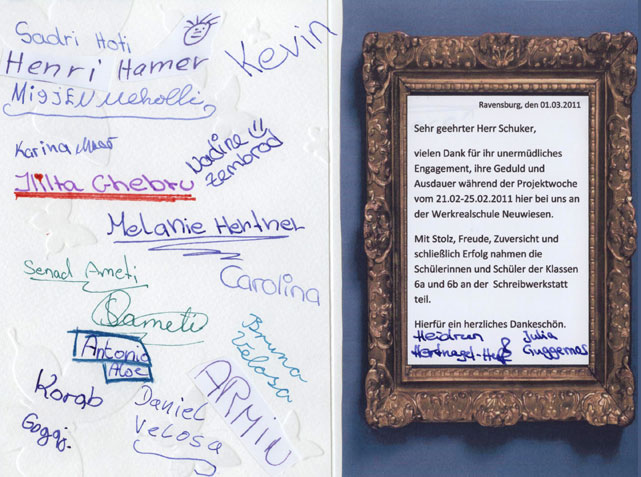 Sadri Hoti
Kevin
Henri Hamer
Karina
Nadine
Zembrod
Ghebru
Melanie Hertner
Senad Ameti
Carolina
Sameti
Antonio
Aloe
Bruna
Velosa
ARMIN
Korab
Daniel
Velosa
Ravensburg, den 01.03.2011
Sehr geehrter Herr Schuker,
vielen Dank für ihr unermüdliches
Engagement, ihre Geduld und
Ausdauer während der Projektwoche
vom 21.02-25.02.2011 hier bei uns an
der Werkrealschule Neuwiesen.
Mit Stolz, Freude, Zuversicht und
schließlich Erfolg nahmen die
Schülerinnen und Schüler der Klassen
6a und 6b an der Schreibwerkstatt
teil.
Hierfür ein herzliches Dankeschön.
Heidrun
& Julia
Guggemos